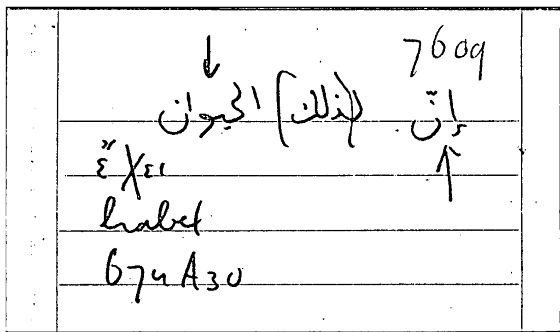 7609
إنّ (لذلك) الحيوان
habet
674A30